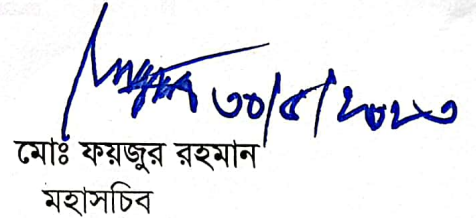 ৩০/৫/২০২৩
মোঃ ফয়জুর রহমান
মহাসচিব